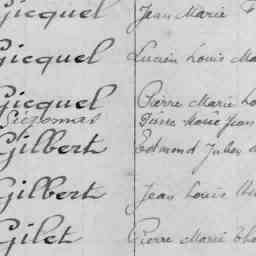 Gicquel Jean Marie
Gicquel Lucien Louis Ma
Gicquel Pierre Marie Lo
Pierre Marie Jean
Gilbert Edmond Jules
Gilbert Jean Louis
Gilet Pierre Marie Tho